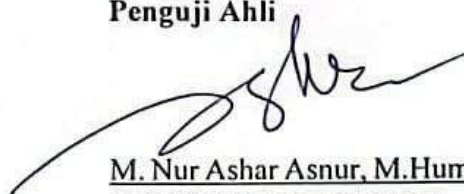 Penguji Ahli
M. Nur Ashar Asnur, M.Hum